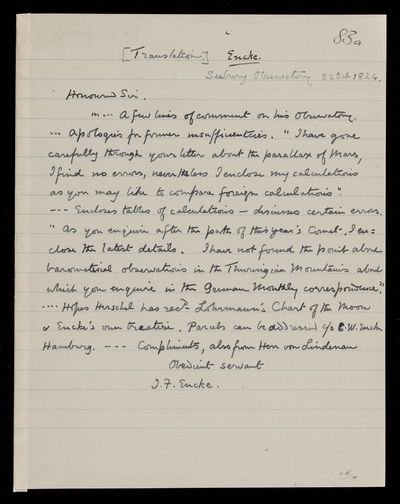 83a
[Translation] Encke.
Seeburg Observatory 22 Oct 1824.
Honoured Sir.
... A few lines of comment on his Observatory.
... Apologies for former insufficiencies. "I have gone
carefully through your letter about the parallax of Mars,
I find no errors, nevertheless I enclose my calculations
as you may like to compare foreign calculations".
--- Encloses tables of calculations — discusses certain errors.
"As you enquire after the path of this year's Comet. I en=
close the latest details. I have not found the point about
barometrical observations in the Thuringian Mountains about
which you enquire in the German Monthly correspondence".
.... Hopes Herschel has recd Lohrmann's Chart of the Moon
& Encke's own treatise. Parcels can be addressed c/o C.W. Encke
Hamburg. --- Compliments, also from Herr von Lindenau
Obedient servant
J. F. Encke.